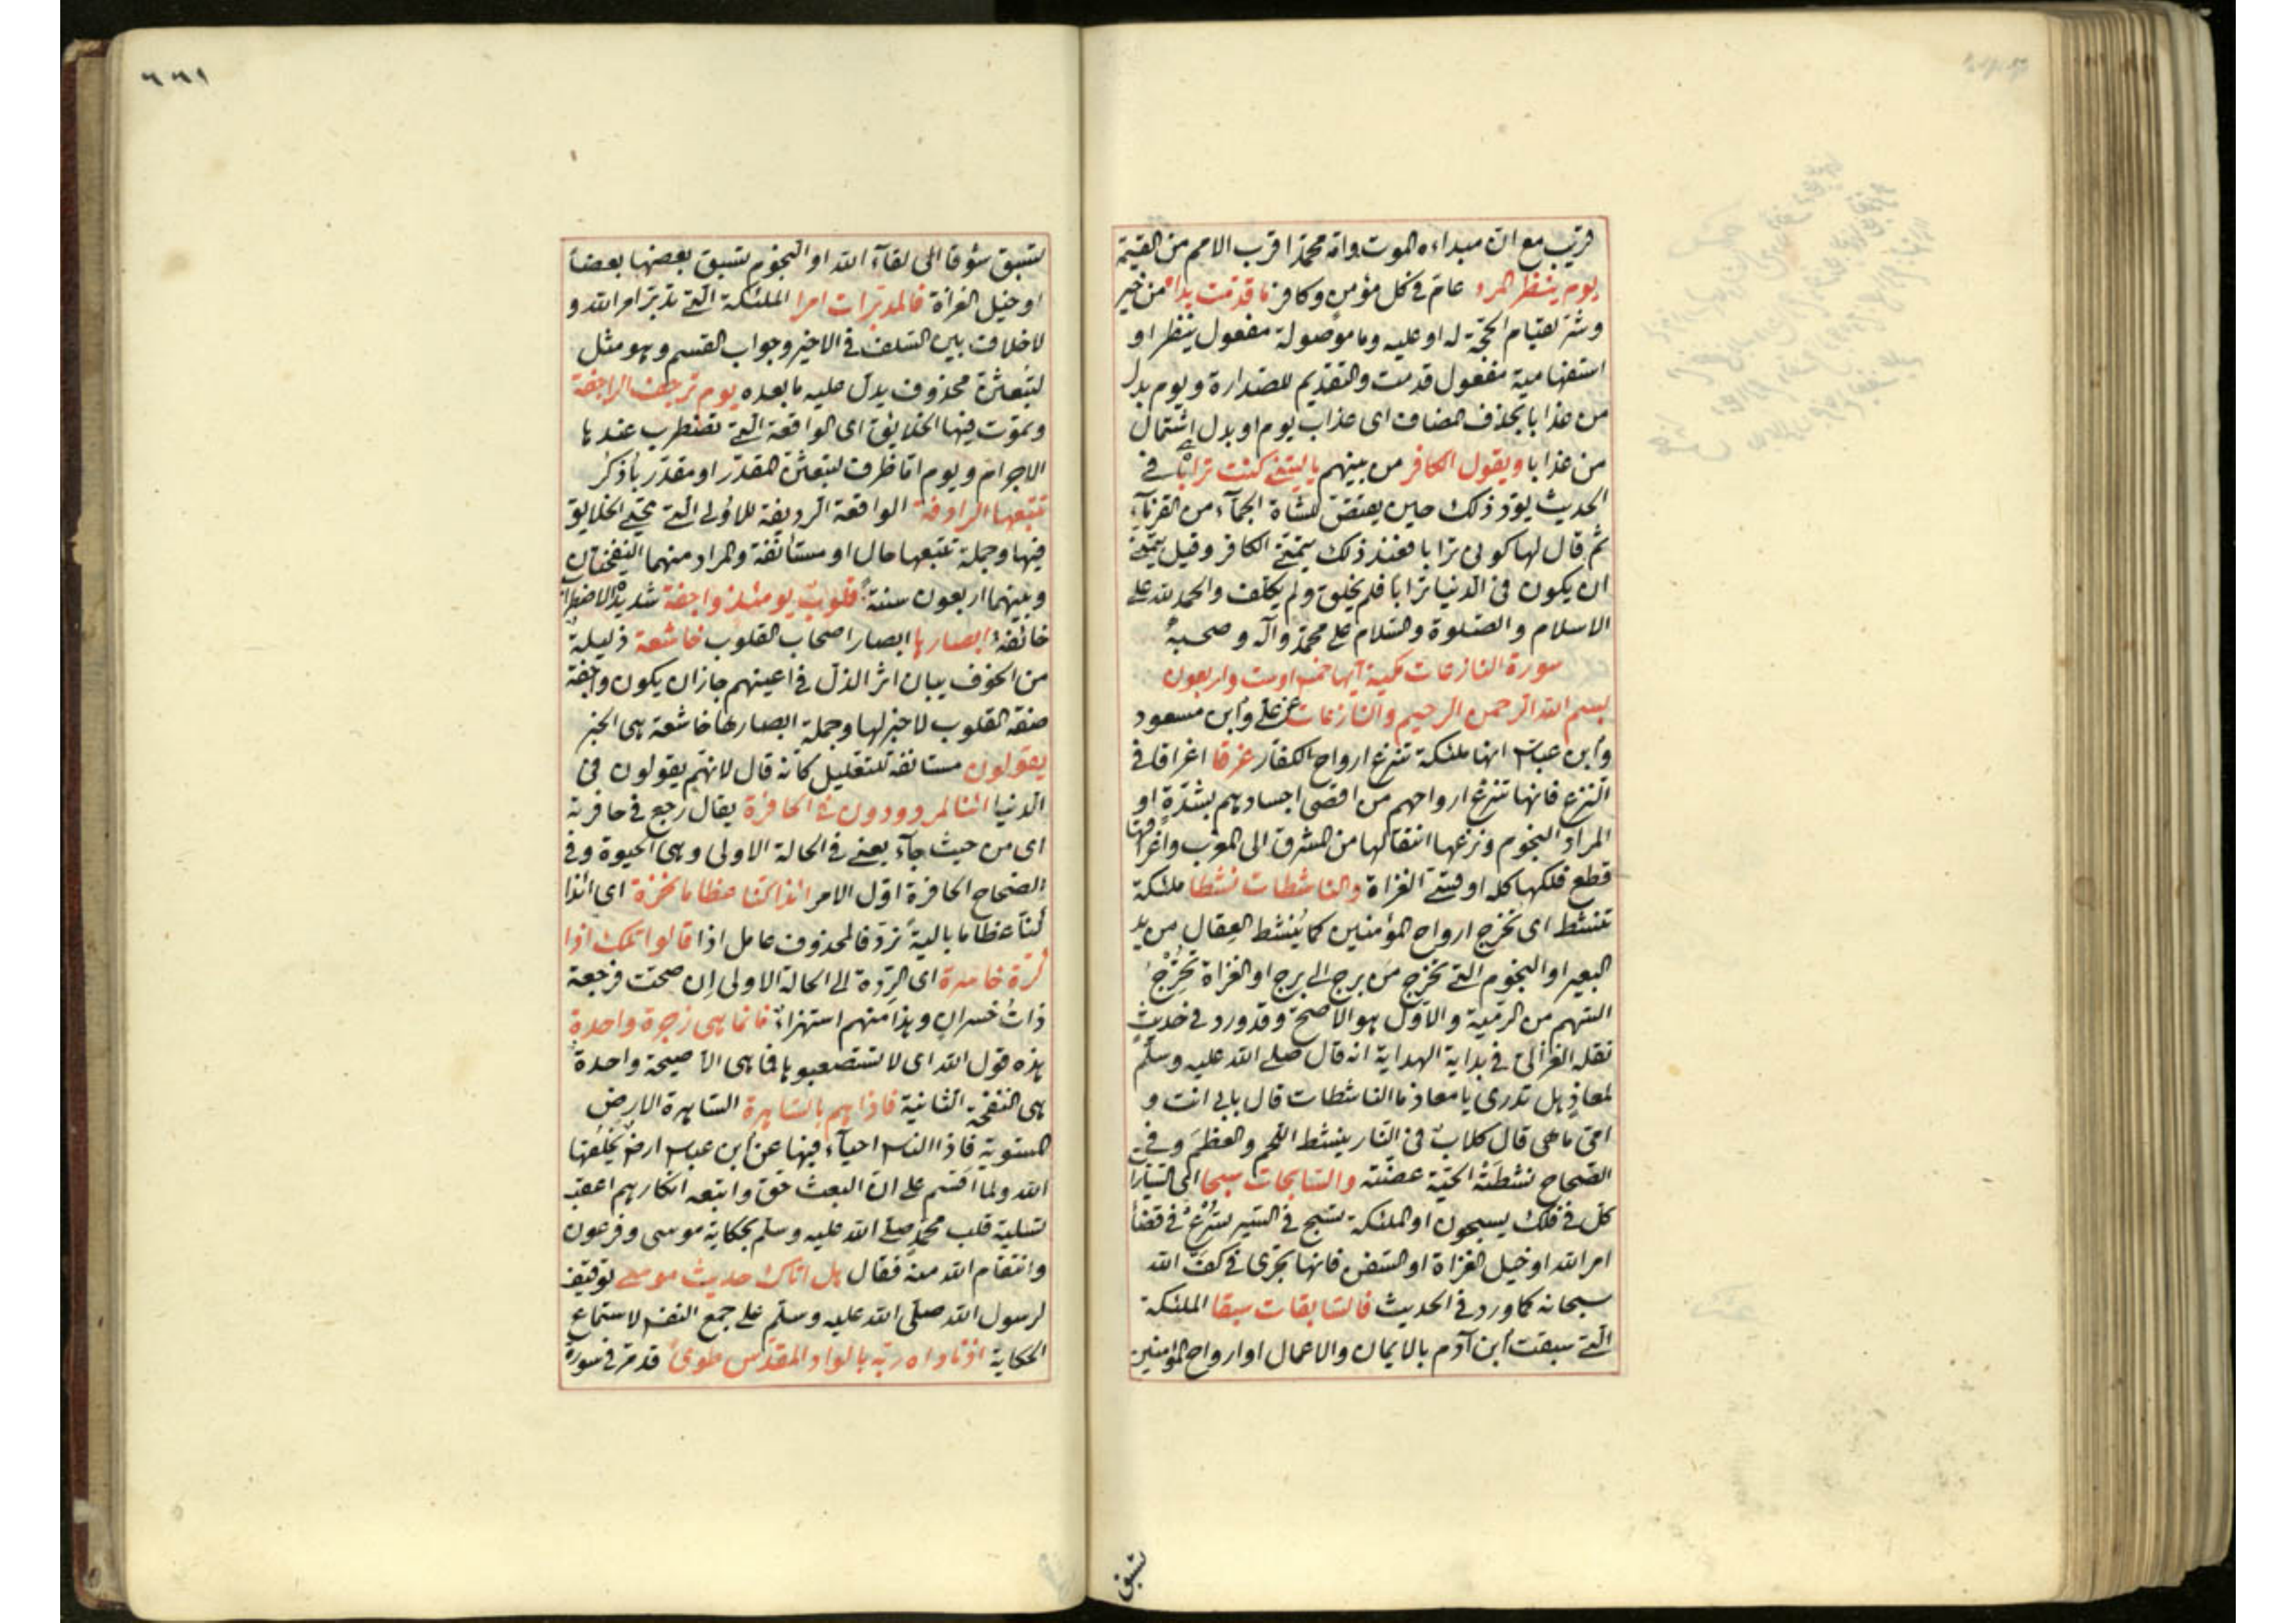 قريب مع ان مبداءه الموت وامة محمد اقرب الامم من القيمة
يوم ينظر المرء عام فى كل مؤمن وكافر ما قدمت يداه من خير
وشر لقيام الحجة له او عليه وما موصولة مفعول ينظر او
استفهامية مفعول قدمت والتقديم للصدارة ويوم بدل
من عذابا بحذف المضاف اى عذاب يوم او بدل اشتمال
من عذابا ويقول الكافر من بينهم ياليتنى كنت ترابا فى
الحديث يود ذلك حين يقتص للشاة الجماء من القرناء
ثم قال لها كونى ترابا فعند ذلك يتمنى الكافر وقيل يتمنى
ان يكون فى الدنيا ترابا فلم يخلق ولم يكلف والحمد لله على
الاسلام والصلوة والسلام على محمد وآله وصحبه
سورة النازعات مكية آيها خمس اوست واربعون
بسم الله الرحمن الرحيم والنازعات عن على وابن مسعود
وابن عباس انها ملئكة تنزع ارواح الكفار غرقا اغراقا فى
النزع فانها تنزع ارواحهم من اقصى اجسادهم بشدة او
المراد النجوم ونزعها انتقالها من المشرق الى المغرب واغراقها
قطع فلكها كله او قسى الغزاة والناشطات نشطا ملئكة
تنشط اى تخرج ارواح المؤمنين كما ينشط العقال من يد
البعير او النجوم التى تخرج من برج الى برج او الغزاة تخرج
السهم من الرمية والاول هو الاصح وقد ورد فى حديث
نقله الغزالى فى بداية الهداية انه قال صلى الله عليه وسلم
لمعاذ هل تدرى يا معاذ ما الناشطات قال بابى انت و
امى ما هى قال كلاب فى النار ينشط اللحم والعظم وفى
الصحاح نشطته الحية عضته والسابحات سبحا اى السيارا
كل فى فلك يسبحون او الملئكة تسبح فى السير تسرع فى قضاء
امر الله او خيل الغزاة او السفن فانها تجرى فى كف الله
سبحانه كما ورد فى الحديث فالسابقات سبقا الملئكة
التى سبقت ابن آدم بالايمان والاعمال او ارواح المؤمنين
تسبق
٦٦١
تسبق شوقا الى لقآء الله او النجوم تسبق بعضها بعضا
او خيل الغزاة فالمدبرات امرا الملئكة التى تدبر امر الله و
لا خلاف بين السلف فى الاخير وجواب القسم وهو مثل
لتبعثن محذوف يدل عليه ما بعده يوم ترجف الراجفة
وتموت فيها الخلايق اى الواقعة التى تضطرب عندها
الاجرام ويوم اما ظرف لتبعثن المقدر او مقدر باذكر
تتبعها الرادفة الواقعة الرديفة للاولى التى تحيى الخلايق
فيها وجملة تتبعها حال او مستأنفة والمراد منهما النفختان
وبينهما اربعون سنة قلوب يومئذ واجفة شديدة الاضطراب
خائفة ابصارها ابصار اصحاب القلوب خاشعة ذليلة
من الخوف يبان اثر الذل فى اعينهم جاز ان يكون واجفة
صفة القلوب لا خبر لها وجملة ابصارها خاشعة هى الخبر
يقولون مستانفة للتعليل كانه قال لانهم يقولون فى
الدنيا ائنا لمردودون فى الحافرة يقال رجع فى حافرته
اى من حيث جآء يعنى فى الحالة الاولى وهى الحيوة وفى
الصحاح الحافرة اول الامر ائذا كنا عظاما نخرة اى ائذا
كنا عظاما بالية نرد فالمحذوف عامل اذا قالوا تلك اذا
كرة خاسرة اى الردة الى الحالة الاولى ان صحت فرجعة
ذات خسران وهذا منهم استهزاء فانما هى زجرة واحدة
هذه قول الله اى لا تستصعبوها فما هى الا صيحة واحدة
هى النفخة الثانية فاذا هم بالساهرة الساهرة الارض
المستوية فاذا الناس احيآء فيها عن ابن عباس ارض يخلقها
الله ولما اقسم على ان البعث حق واتبعه انكارهم اعقب
تسلية قلب محمد صلى الله عليه وسلم بحكاية موسى وفرعون
وانتقام الله منه فقال هل اتاك حديث موسى توقيف
لرسول الله صلى الله عليه وسلم على جمع النفس لاستماع
الحكاية اذ ناداه ربه بالواد المقدس طوى قد مر فى سورة